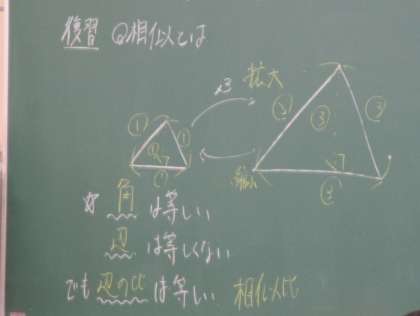 復習 Q相似とは
拡大
縮小
① ① ①
③ ③ ③
角 は等しい
辺 は等しくない
でも 辺の比 は等しい 相似比